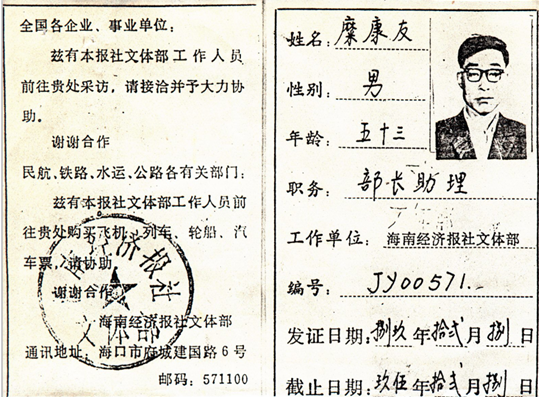 全国各企业、事业单位:
兹有本报社文体部工作人员
前往贵处采访,请接洽并予大力协
助。
谢谢合作
民航、铁路、水运、公路各有关部门:
兹有本报社文体部工作人员前
往贵处购买飞机、列车、轮船、汽
车票,请协助。
谢谢合作
海南经济报社文体部
通讯地址:海口市府城建国路6号
邮码:571100
经济报社
文体部
姓名:糜康友
性别:男
年龄:五十三
职务:部长助理
工作单位:海南经济报社文体部
编号:JY00571.
发证日期:捌玖年拾贰月捌日
截止日期:玖伍年拾贰月捌日